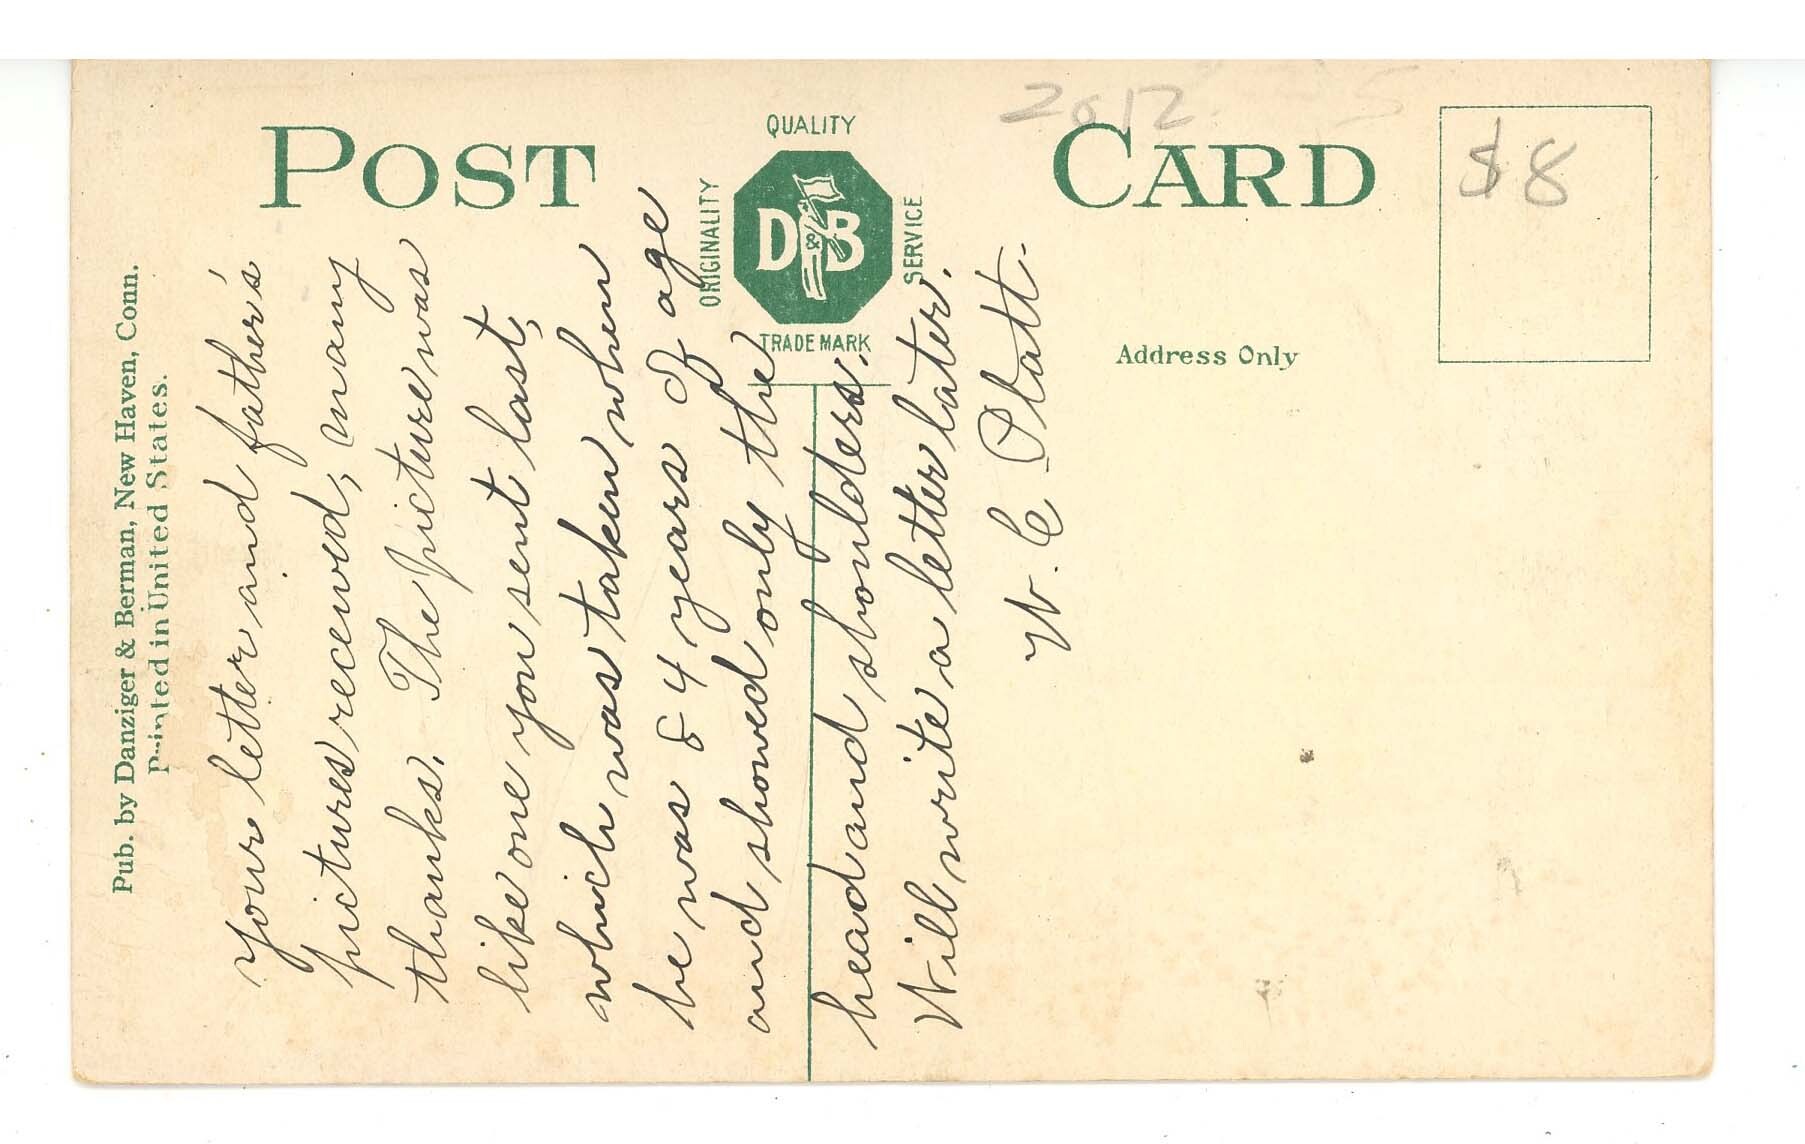 POST CARD
QUALITY
ORIGINALITY
D&B
SERVICE
TRADE MARK
Address Only
2012
5
$8
Pub. by Danziger & Berman, New Haven, Conn.
Printed in United States.
Your letter and father's
pictures received, many
thanks. The picture was
like one you sent last,
which was taken when
he was 84 years of age
and showed only the
head and shoulders.
Will write a letter later.
W. C. Platt.